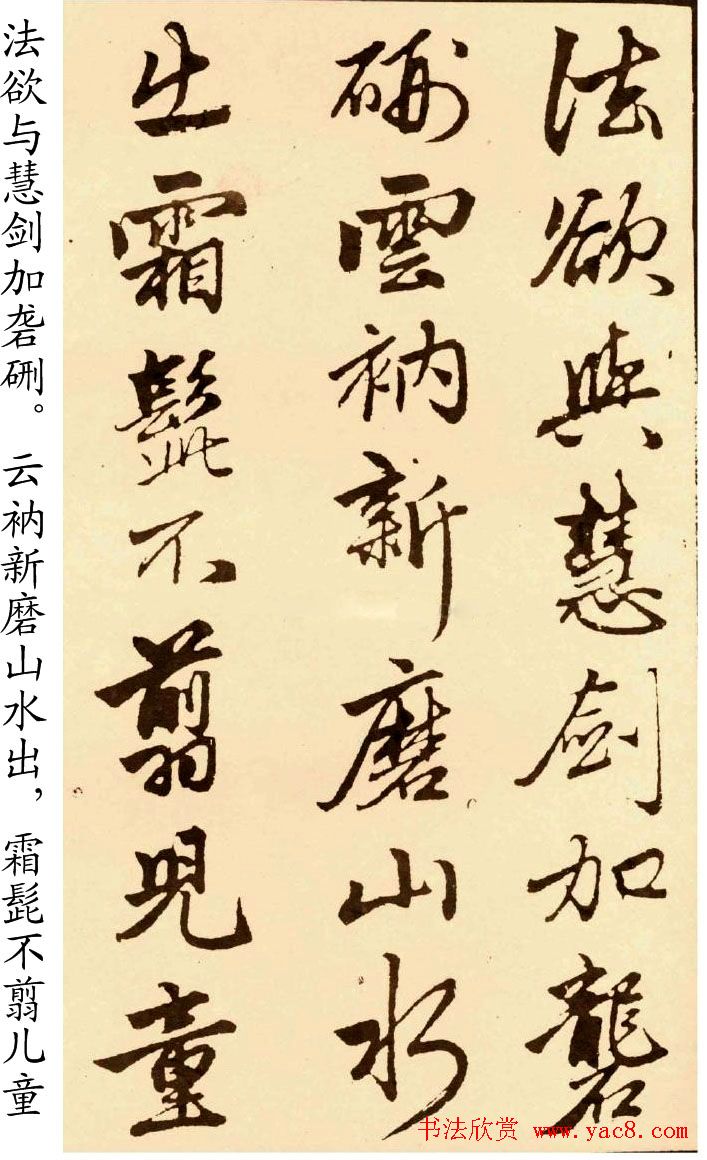 法欲與慧劍加礱
硎雲衲新磨山水
出霜髭不翦兒童
法欲与慧剑加砻硎。云衲新磨山水出，霜髭不翦儿童
书法欣赏 www.yac8.com